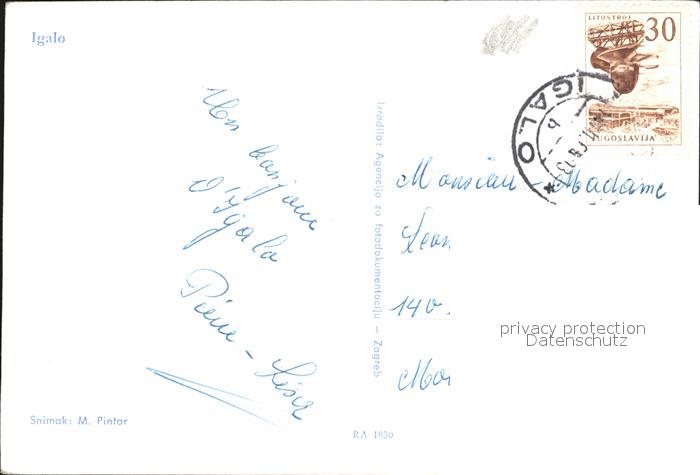 Igalo
LITOSTROJ
30
JUGOSLAVIJA
IGALO
Un bonjour
d'Igalo
Pierre - Lise
Izradila: Agencija za fotodokumentaciju - Zagreb
Monsieur - Madame
Leon
140.
privacy protection
Datenschutz
Snimak: M. Pintar
RA 1830